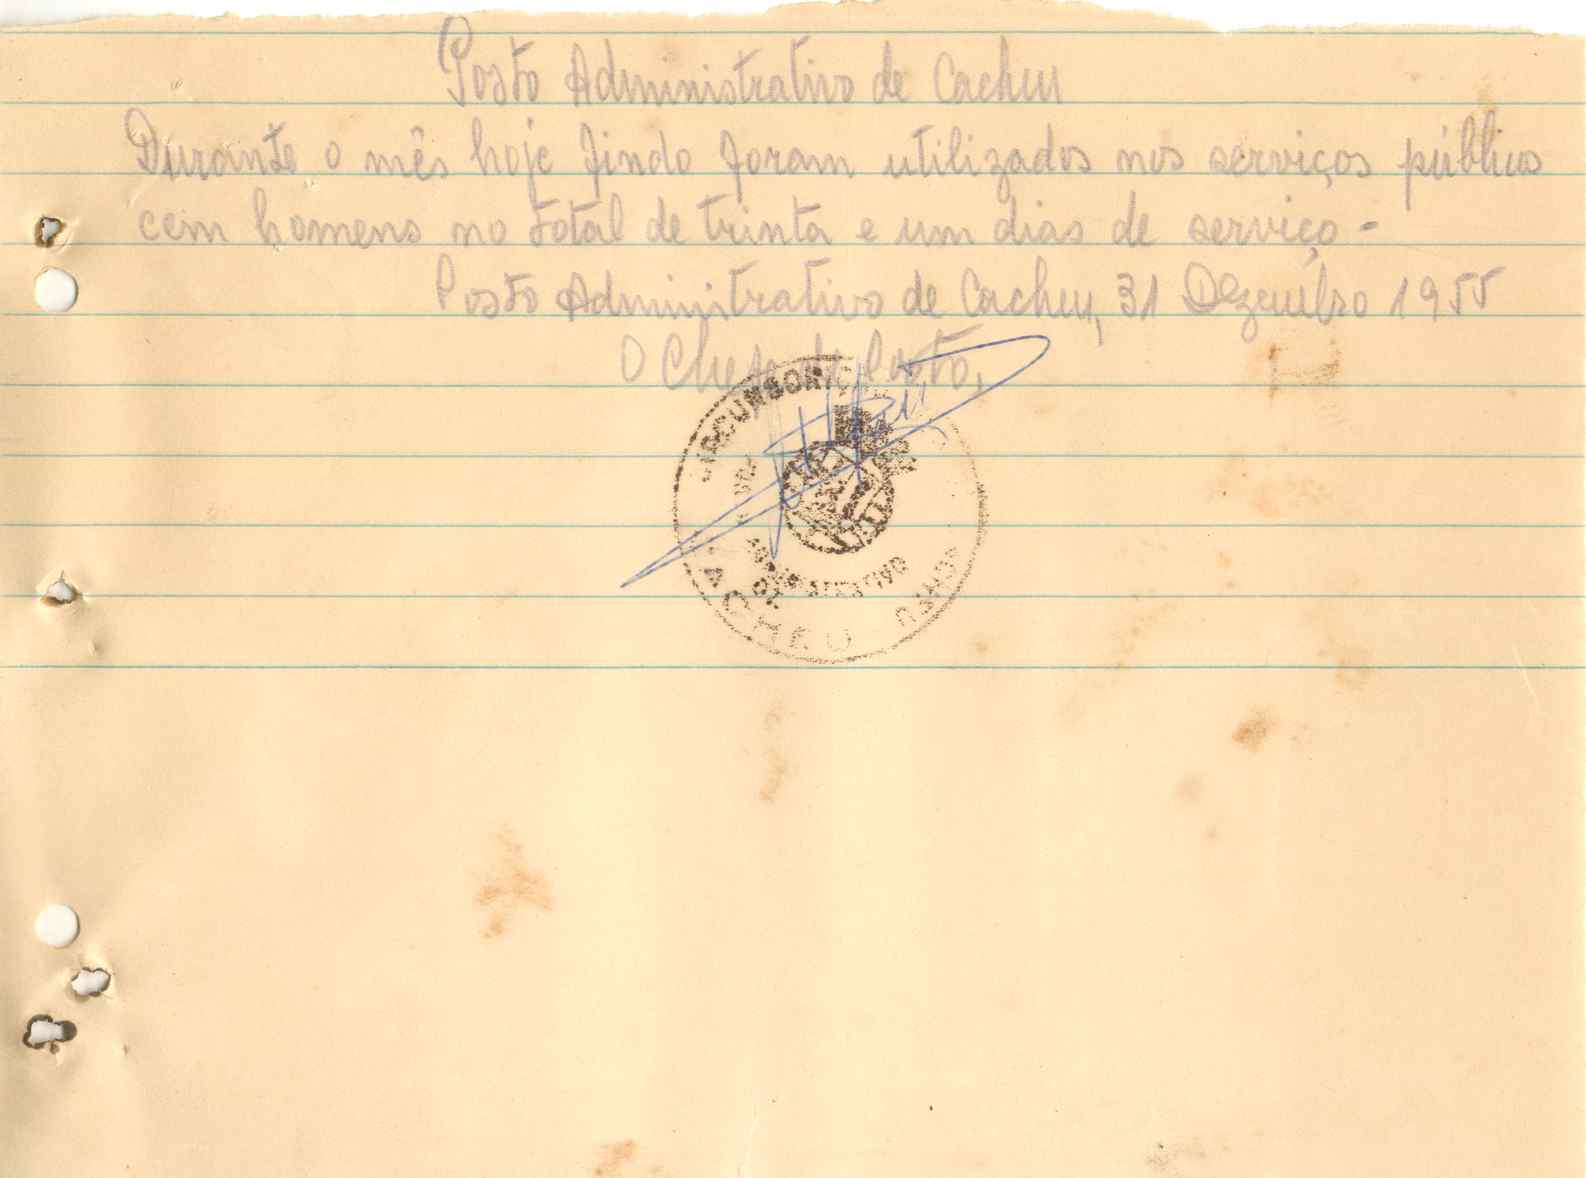 Posto Administrativo de Cacheu
Durante o mês hoje findo foram utilizados nos serviços públicos
cem homens no total de trinta e um dias de serviço -
Posto Administrativo de Cacheu, 31 Dezembro 1955
O Chefe de Posto,
CIRCUNSCRIÇ
CACHEU